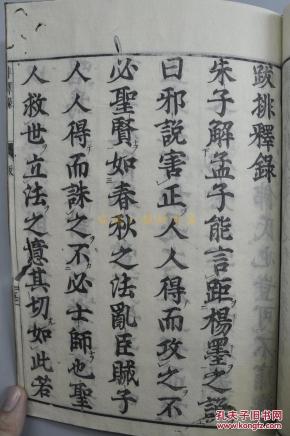 跋排釋錄
朱子解孟子能言距楊墨之語
曰邪說害正人人得而攻之不
必聖賢如春秋之法亂臣賊子
人人得而誅之不必士師也聖
人救世立法之意其切如此若
孔夫子旧书网